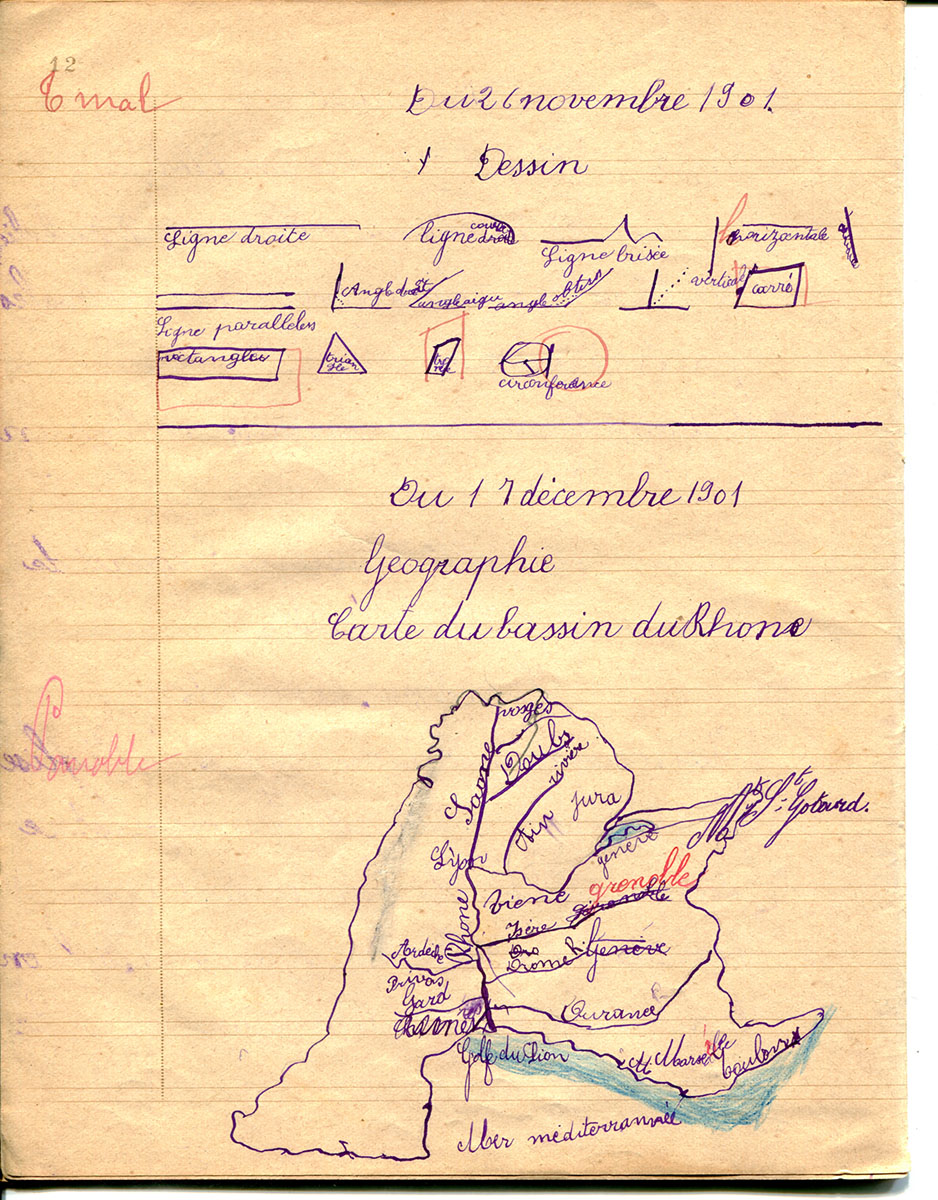 12
T mal
Du 26 novembre 1901.
Dessin
Ligne droite
ligne courbe
Ligne brisée
horizontale
Angle droit
angle aigu
angle obtus
vertical
carré
Ligne parallèles
rectangles
trian
gle
circonférance
Du 17 décembre 1901
Geographie
Carte du bassin du Rhone
Passable
vosges
Saone
Doubs
rivière
Ain
jura
Mt St-Gotard.
genève
Lyon
viene
grenoble
Rhone
Isère
Ardèche
Dro
Drome R.
Genève
Privas
Gard
Durance
Golfe du Lion
Marseille
toulon
Mer méditerrannée